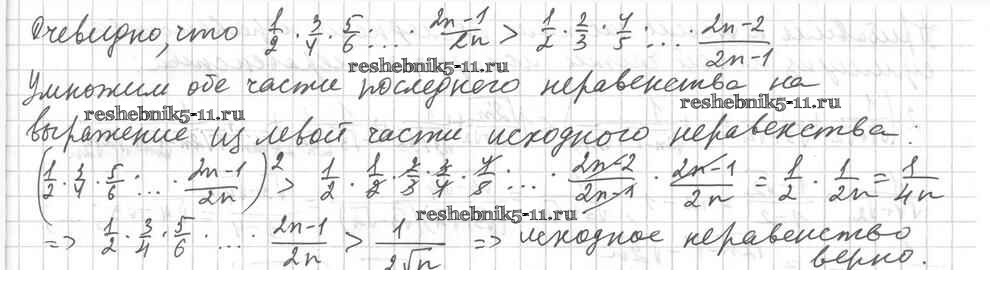 Очевидно, что 1/2 · 3/4 · 5/6 · ... · 2n-1/2n > 1/2 · 2/3 · 4/5 · ... · 2n-2/2n-1
reshebnik5-11.ru
Умножим обе части последнего неравенства на
reshebnik5-11.ru
reshebnik5-11.ru
выражение из левой части исходного неравенства:
(1/2 · 3/4 · 5/6 · ... · 2n-1/2n)² > 1/2 · 1/2 · 2/3 · 3/4 · 4/5 · ... · 2n-2/2n-1 · 2n-1/2n = 1/2 · 1/2n = 1/4n
reshebnik5-11.ru
=> 1/2 · 3/4 · 5/6 · ... · 2n-1/2n > 1/2√n => исходное неравенство
верно.